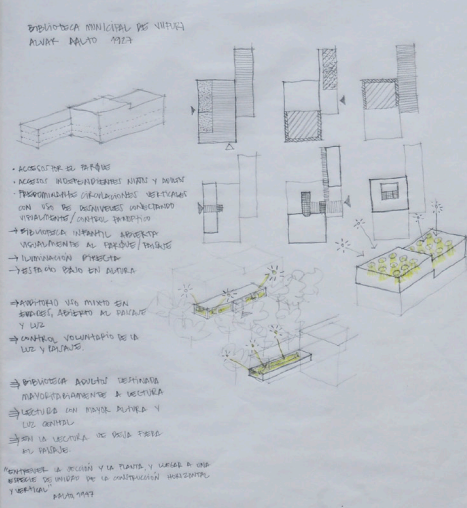 BIBLIOTECA MUNICIPAL DE VIIPURI
ALVAR AALTO 1927
• ACCESOS POR EL PARQUE
• ACCESOS INDEPENDIENTES NIÑOS Y ADULTOS
• PREDOMINANTE CIRCULACIONES VERTICALES
CON USO DE DESNIVELES CONECTANDO
VISUALMENTE / CONTROL
→ BIBLIOTECA INFANTIL ABIERTA
VISUALMENTE AL PARQUE/PAISAJE
→ ILUMINACION DIRECTA
→ ESPACIO BAJO EN ALTURA
⇒ AUDITORIO USO MIXTO EN
ABIERTO AL PAISAJE
Y LUZ
⇒ CONTROL VOLUNTARIO DE LA
LUZ Y PAISAJE
⇒ BIBLIOTECA ADULTOS DESTINADA
MAYORITARIAMENTE A LECTURA
⇒ LECTURA CON MAYOR ALTURA Y
LUZ CENITAL
⇒ EN LA LECTURA SE DEJA FUERA
AL PAISAJE
"ENTENDER LA SECCIÓN Y LA PLANTA, Y LLEGAR A UNA
ESPECIE DE UNIDAD DE LA CONSTRUCCIÓN HORIZONTAL
Y VERTICAL"
AALTO